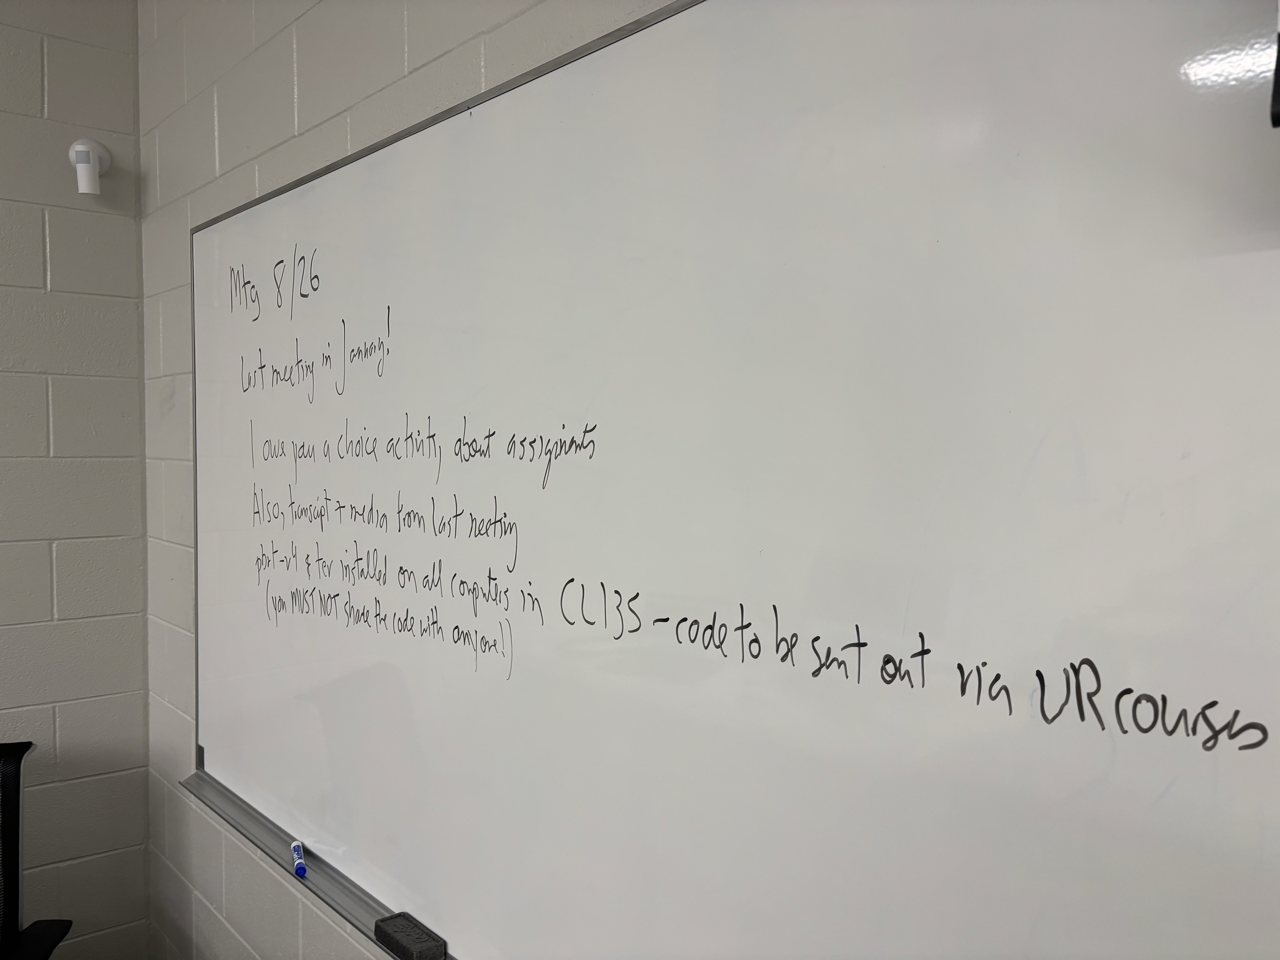 Mtg 8/26
Last meeting in January!
I owe you a choice activity about assignments
Also, transcript + media from last meeting
pbrt-v4 & tev installed on all computers in CL135 - code to be sent out via UR courses
(you MUST NOT share the code with anyone!)